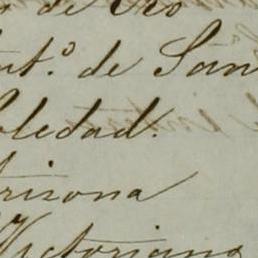 de Oro
nt.º de San
Soledad.
Arizona
Victoriano